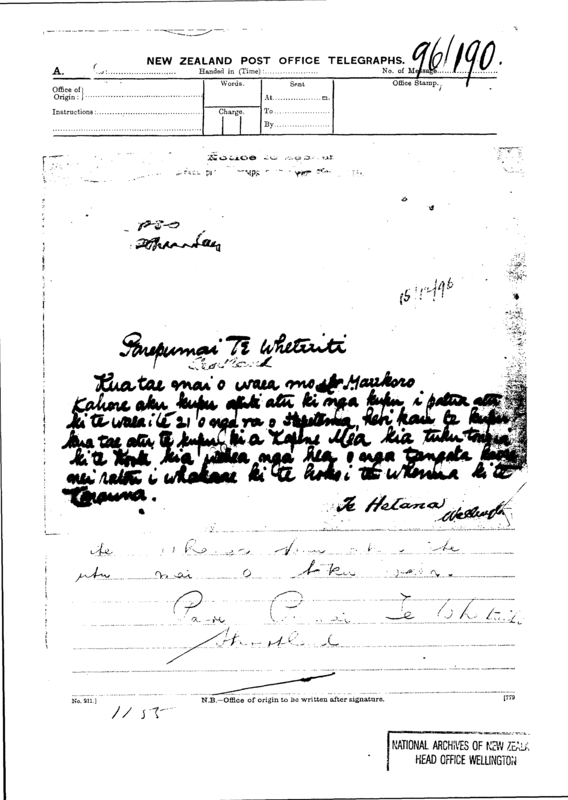 96/190.
NEW ZEALAND POST OFFICE TELEGRAPHS.
A.
Handed in (Time):
No. of Message
Office of
Origin:
Words.
Sent
Office Stamp.
At m.
Instructions:
Charge.
To
By
Notice to
15/12/96
Parepumai Te Whetuiti
Shortland
Kua tae mai o waea mo Marekoro
Kahore aku kupu apiti atu ki nga kupu i patua atu
ki te waea i te 21 o nga ra o Hepetema, heri kau te kupu
kua tae atu te kupu kia Kapene Mea kia tuku tonu
ki te Kooti kia wehea nga hea o nga tangata kaore
nei ratou i whakaae ki te hoko i te whenua ki te
Karauna.
Te Hetana
Wellington
utu mai o toku waea.
Te Whetuiti
Shortland
No. 931.]
N.B.—Office of origin to be written after signature.
[779
1155
NATIONAL ARCHIVES OF NEW ZEALA
HEAD OFFICE WELLINGTON